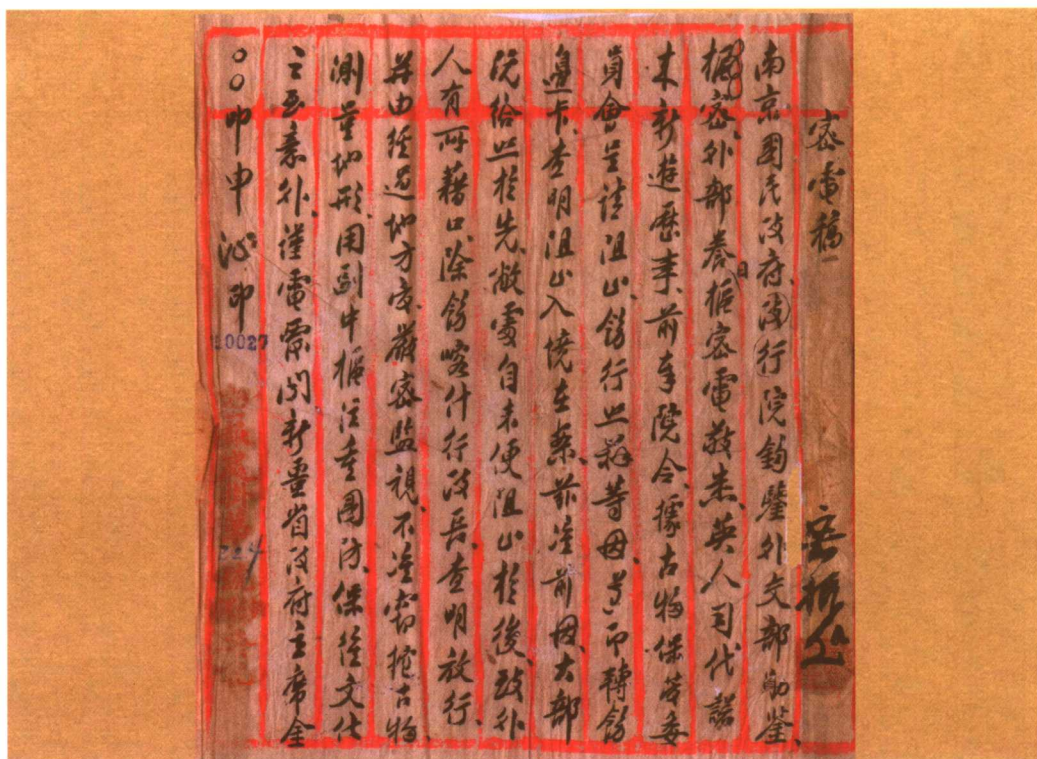 密電稿
南京國民政府行政院鈞鑒外交部勛鑒
樞密外部養樞密電敬悉英人司代諾
來新遊歷事前奉院令據古物保管委
員會呈請阻止飭行照辦等因遵即轉飭
邊卡查明阻止入境在案茲准前因大部
既給照於先敝處自未便阻止於後致外
人有所藉口除飭喀什行政長查明放行
並由經過地方官嚴密監視不准窃挖古物
測量地形用副中樞注重國防保存文化
之至意外謹電察閱新疆省政府主席金
○○叩申 印
10027